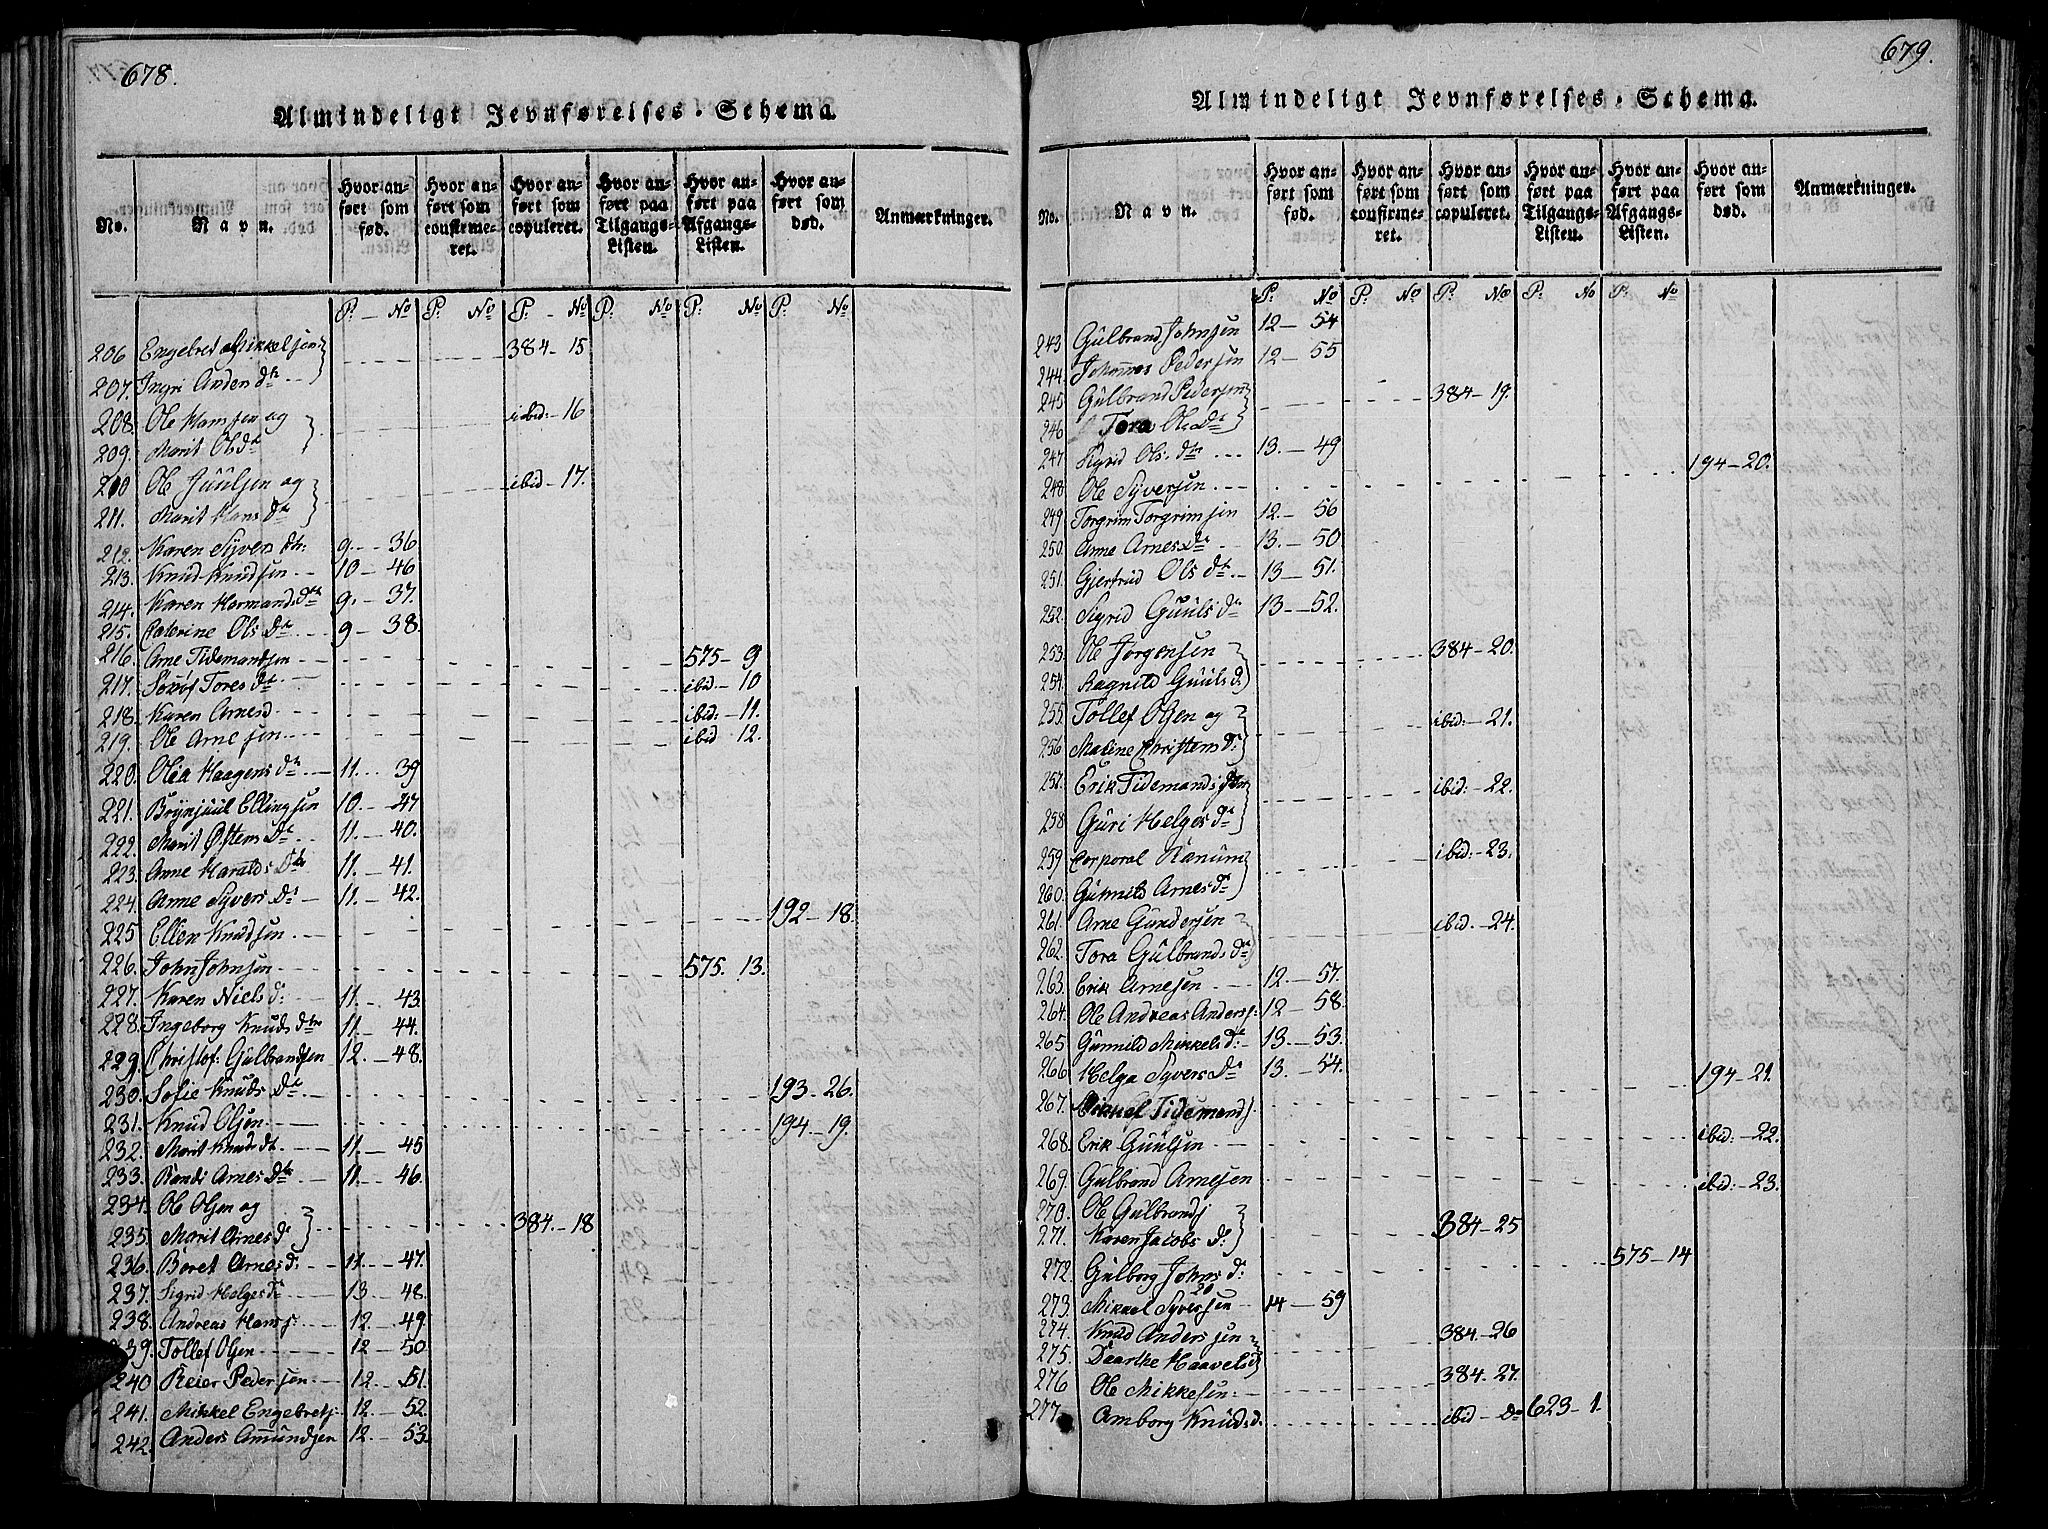 678.
Almindeligt Jevnførelses-Schema.
No.
Navn.
Hvor anført som fød.
Hvor anført som confirmeret.
Hvor anført som copuleret.
Hvor anført paa Tilgangs-Listen.
Hvor anført paa Afgangs-Listen.
Hvor anført som død.
Anmærkninger.
P. — No P. No P. - No P. No P. No P. No
206 Engebred Mikkelsen 384 - 15
207. Ingri Anders Dtr
208. Ole Hansen og ibid: - 16
209. Marit Ols Dr
210 Ole Juulsen og ibid - 17.
211. Marit Hans Dr
212. Karen Syvers dtr: 9. - - 36
213. Knud Knudsen 10 - 46
214. Karen Hermands Dtr 9. - 37.
215. Caterine Ols Dr 9 - 38.
216. Arne Tidemandsen 575 - 9
217. Tores Dr ibid - 10
218. Karen Arnesd ibid: - 11.
219. Ole Arnesen ibid - 12.
220. Olia Haagens Dr 11. - 39
221. Brynjuul Ellingsen 10. - 47
222. Marit Østens Dr 11. - 40.
223. Anne Haralds Dtr 11. - 41.
224. Anne Syvers Dr 11. - 42.
225 Ellen Knudsen 192 - 18.
226. John Johnsen 575. 13.
227. Karen Niels d: 11. - 43
228. Ingeborg Knuds Dtr 11. - 44.
229. Christof: Gulbrandsen 12. - 48.
230. Sofie Knuds Dr 193 - 26.
231. Knud Olsen 194 - 19.
232. Marit Knuds dt 11. - 45
233. Randi Arnes Dtr 11 - 46.
234. Ole Olsen og 384. - 18
235. Marit Arnes Dr
236. Boret Arnes d: 11. - 47.
237. Sigrid Helges Dr 13 - 48.
238. Andreas Hans s: 12. - 49.
239. Tollef Olsen 12 - 50
240 Reier Pedersen 12. - 51.
241. Mikkel Engebrets: 12. - 52.
242. Anders Amundsen 12. - 53.
679.
Almindeligt Jevnførelses-Schema.
No.
Navn.
Hvor anført som fød.
Hvor anført som confirmeret.
Hvor anført som copuleret.
Hvor anført paa Tilgangs-Listen.
Hvor anført paa Afgangs-Listen.
Hvor anført som død.
Anmærkninger.
P. No P. No P. No P. No P. No
243 Gulbrand Johnsen 12 - 54
244. Johannes Pedersen 12 - 55
245 Gulbrand Pedersen 384 - 19.
246 Tora Ols Dr
247 Sigrid Ols Dtr 13. - 49
248 Ole Syversen 194 - 20.
249 Torgrim Torgrimsen 12. - 56
250. Anne Arnes Dr 13. - 50
251. Gjertrud Ols Dr 13 - 51.
252. Sigrid Guuls Dr 13 - 52.
253. Ole Jørgensen 384 - 20.
254. Ragnild Guuls D
255. Tollef Olsen og ibid: - 21.
256 Malene Christens D:
257. Erik Tidemandsen ibid: - 22.
258 Guri Helges Dr
259 Corporal Ranum ibid: - 23.
260. Gunnild Arnes Dr
261. Arne Gundersen ibid. - 24.
262. Tora Gulbrands Dr
263. Erik Arnesen 12. - 57.
264. Ole Andreas Anders s: 12 - 58.
265 Gunnild Mikkels Dr 13. - 53.
266 Helga Syvers Dr 13. - 54.
267. Mikkel Tidemands. 194 - 21.
268. Erik Guulsen ibid: - 22.
269. Gulbrand Arnesen ibid: - 23.
270. Ole Gulbrands 384 - 25
271. Karen Jacobs D:
272 Gulborg Johns d: 575 - 14
273. Mikkel Syversen 14 - 59
20
274. Knud Andersen 384. - 26
275. Haavels D
276 Ole Mikkelsen: 384. - 27.
277. Amborg Knuds d. ibid - Do 623 - 1.